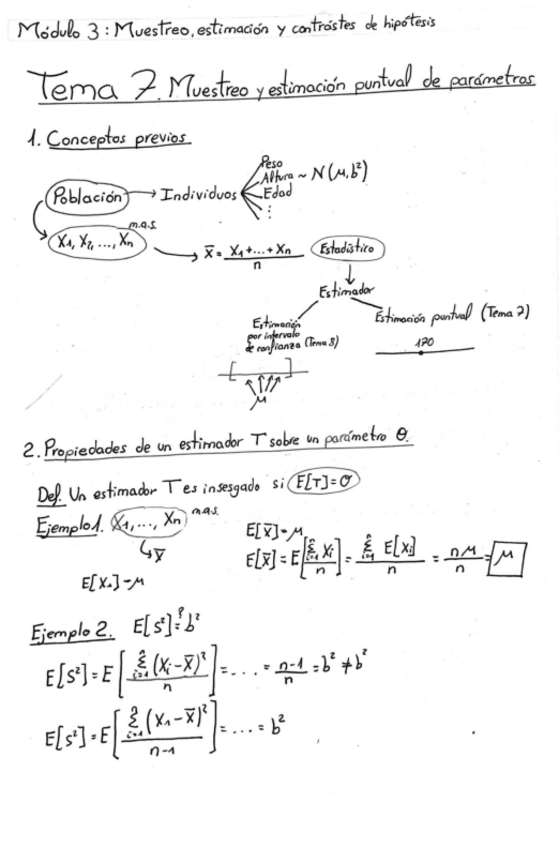 Módulo 3: Muestreo, estimación y contrástes de hipótesis
Tema 7. Muestreo y estimación puntual de parámetros
1. Conceptos previos
Peso
Altura ~ N(μ, b²)
Población → Individuos
Edad
⋮
m.a.s.
X₁, X₂, ..., Xn → x̄ = X₁+...+Xn / n
Estadístico
Estimador
Estimación por intervalo de confianza (Tema 8)
Estimación puntual (Tema 7)
170
[ ]
μ
2. Propiedades de un estimador T sobre un parámetro θ.
Def. Un estimador T es insesgado si E[T]=σ
Ejemplo 1. X₁, ..., Xn m.a.s.
↳ x̄
E[X₁]=μ
E[x̄]=μ
E[x̄] = E[Σⁿᵢ₌₁ Xi / n] = Σⁿᵢ₌₁ E[Xi] / n = nμ / n = μ
Ejemplo 2. E[s²] =? b²
E[s²] = E[Σⁿᵢ₌₁ (Xi - x̄)² / n] = ... = n-1 / n = b² ≠ b²
E[s²] = E[Σⁿᵢ₌₁ (X₁ - x̄)² / n-1] = ... = b²